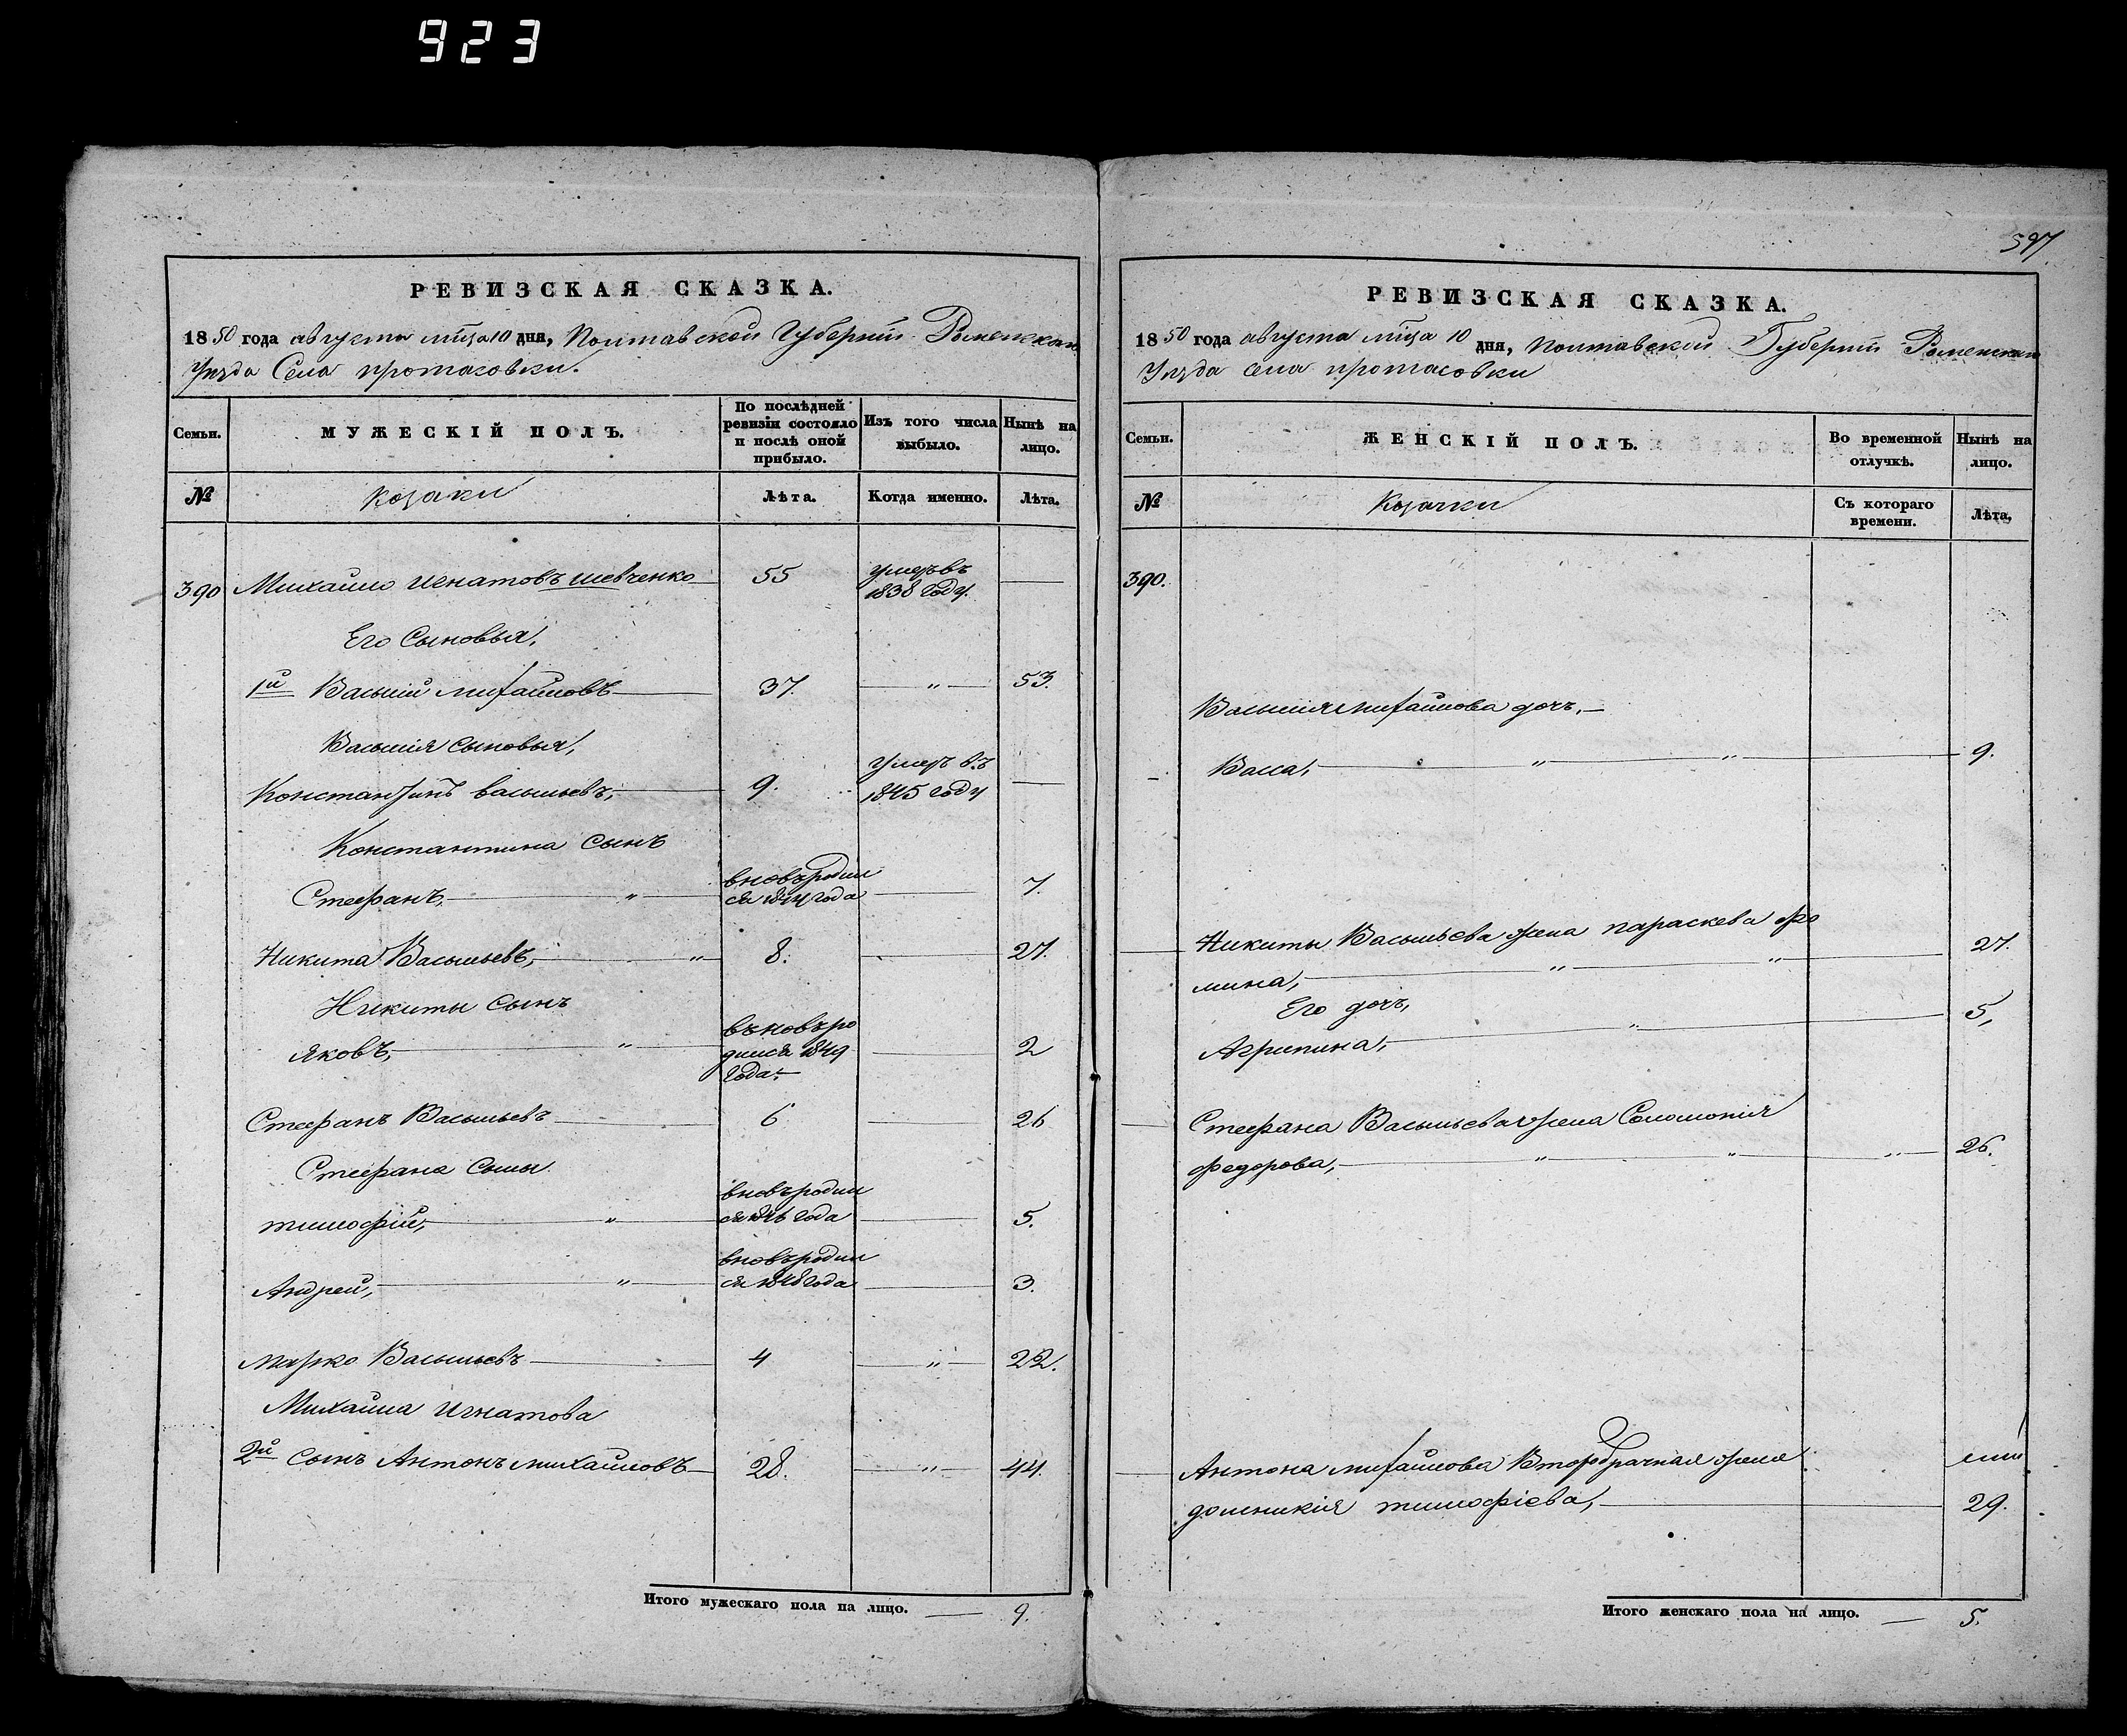 923
597
РЕВИЗСКАЯ СКАЗКА.
1850 года августа мѣца 10 дня, Полтавской Губерніи Роменскаго
Уѣзда Села протасовки.
Семьи. МУЖЕСКІЙ ПОЛЪ. По послѣдней ревизіи состояло и послѣ оной прибыло. Изъ того числа выбыло. Нынѣ на лицо.
№ Козаки Лѣта. Когда именно. Лѣта.
390 Михайло игнатовъ шевченко 55 умеръ въ 1838 году.
Его Сыновья,
1й Василій михайловъ 37. " 53.
Василія сыновья,
Константинъ васильевъ, 9. умеръ въ 1845 году
Константина сынъ
Стефанъ, " вновь родился 1844 года 7.
Никита Васильевъ, " 8. 27.
Никиты сынъ
яковъ, " вновь родился 1849 года. 2
Стефанъ Васильевъ 6 26
Стефана сыны
тимофій, " вновь родился 1846 года 5.
Андрей, " вновь родился 1848 года 3.
марко Васильевъ 4 " 22.
Михайла игнатова
2й сынъ Антонъ михайловъ 28. " 44.
Итого мужескаго пола на лицо. 9.
РЕВИЗСКАЯ СКАЗКА.
1850 года августа мѣца 10 дня, полтавской Губерніи Роменскаго
Уѣзда села протасовки
Семьи. ЖЕНСКІЙ ПОЛЪ. Во временной отлучкѣ. Нынѣ на лицо.
№ Козачки Съ котораго времени. Лѣта.
390.
Василія михайлова дочь,
Васса, " " 9.
Никиты Васильева жена параскева фо
мина, " " 27.
Его дочь,
Агрипина, " 5,
Стефана Васильева жена Соломонія
федорова, " " " 26.
Антона михайлова Второбрачная жена
домникія тимофіева, 29.
Итого женскаго пола на лицо. 5.